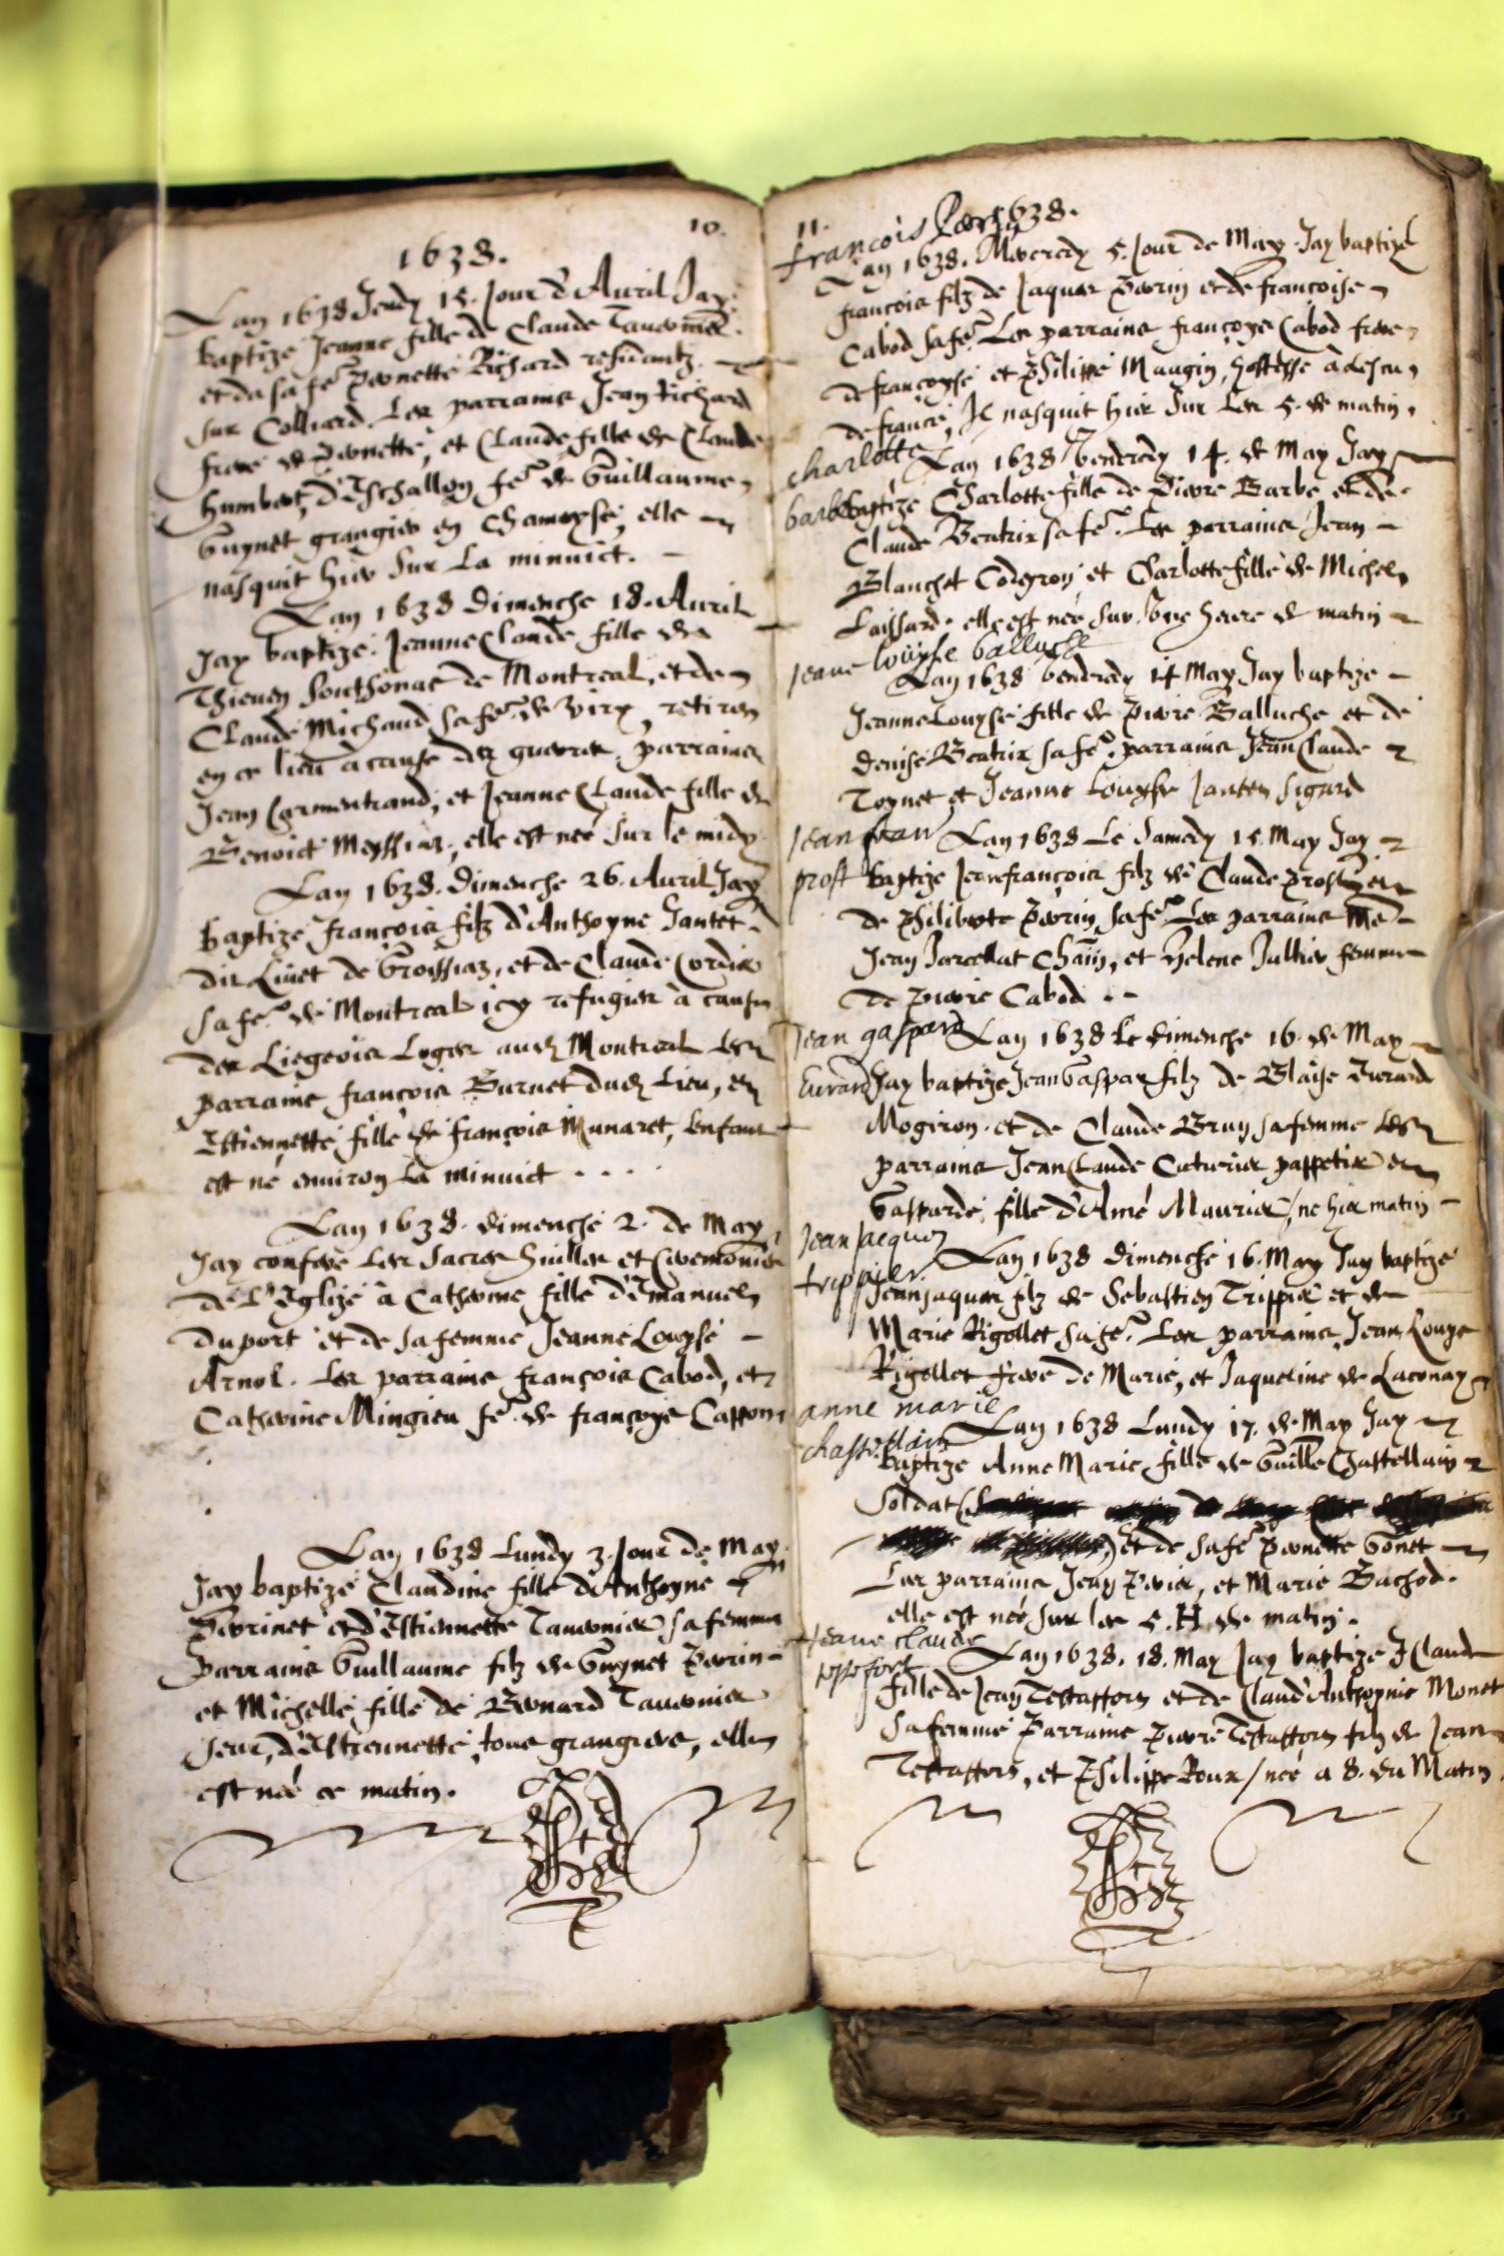 10.
1638.
Lan 1638 Jeudy 15. Jour d'Auril Jay
baptize Jeanne fille de Claude Tauernier
et de sa fe. Pernette Richard residantz
sur Colliard. Les parrains Jean Richard
frere de Pernette, et Claude fille de Claude
Humbert, d'Eschallon fe. de Guillaume
Guynet grangier en Chamoyse, elle
nasquit hier sur La minuict.
Lan 1638 dimenche 18. Auril
Jay baptize Jeanne Claude fille de
Thieuen Sonthonas de Montreal, et de
Claude Michaud sa fe. de retirez
en ce lieu a cause des guerres. parrains
Jean Carmentrand, et Jeanne Claude fille de
Benoict Meyssiaz, elle est neé sur le midy
Lan 1638. dimenche 26. Auril Jay
baptize françois filz d'Anthoyne Jantet
dit Liuet de Groissiaz, et de Claude Cordier
sa fe. de Montreal icy refugier à cause
des Liegeois Logés aud. Montreal Les
parrains françois Burnet dud. Lieu, et
Estiennette fille de françois Munaret, lenfant
est né enuiron La minuict . . . .
Lan 1638. dimenche 2. de May
Jay conferé Les sacrés huilles et Ceremonies
de l'Eglize à Catherine fille d'Emanuel
duport et de sa femme Jeanne Louyse
Arnol. Les parrains françois Cabod, et
Catherine Mingieu fe. de françoys Cappon
Lan 1638 Lundy 3. Jour de May
Jay baptizé Claudine fille d'Anthoyne
Perrinet et d'Estiennette Tauernier sa femme
Parrains Guillaume filz de Guynet Perrin
et Michelle fille de Bernard Tauernier
seur, d'Estiennette, tous grangiers, elle
est neé ce matin.
11.
1638.
francois Perrin
Lan 1638. Mercredy 5. Jour de May. Jay baptizé
francois filz de Jaques Perrin et de francoise
Cabod sa fe. Les parrains françoys Cabod frere
de françoyse et Philippe Maugin, hostesse à lescu
de france, Il nasquit hier sur Les 5. de matin.
charlotte
barbe
Lan 1638 Vendredy 14. de May Jay
baptize Charlotte fille de Pierre Barbe et de
Claude Beatrix sa fe. Les parrains Jean
Blanchet Codegroy et Charlotte fille de Michel
Laissard. elle est neé sur Vne heure de matin
Jeane louyse balluche
Lan 1638 Vendredy 14 May Jay baptize
Jeanne Louyse fille de Pierre Balluche et de
Denise Beatrix sa fe. parrains Jean Claude
Toynet et Jeanne Louyse Janten Sigard
Jean fran
prost
Lan 1638 Le Samedy 15. May Jay
baptize Jean françois filz de Claude Prost et
de Philiberte Perrin sa fe. Les parrains
Jean Jarcellat Chan, et Helene Jullier femme
de Pierre Cabod . .
Jean gaspard
Eurard
Lan 1638 le dimenche 16. de May
Jay baptize Jean Gaspar filz de Blaise Eurard
Mogiron. et de Claude Brun sa femme Les
parrains Jean Claude Cuturier pappetier et
Gasparde, fille d'Amé Maurier / ne hier matin
Jean Jacques
trippier
Lan 1638 dimenche 16. May Jay baptize
Jean Jaques filz de Sebastien Trippier et de
Marie Rigollet sa fe. Les parrains Jean Louys
Rigollet frere de Marie, et Jaqueline de Laconay
anne marie
chastellain
Lan 1638 Lundy 17. de May Jay
baptize Anne Marie fille de Guille Chastellain
soldat
et de sa fe Pernette Gonet
Les parrains Jean Perier, et Marie Bachod.
elle est neé sur les 5. H. de matin.
Jeane claude
Lan 1638. 18. May Jay baptize J Claude
fille de Jean Testaffors et de Claud' Anthoynie Monet
sa femme Parrains Pierre Testaffors filz de Jean
Testaffors, et Philippe Roux / neé a 8. du Matin.